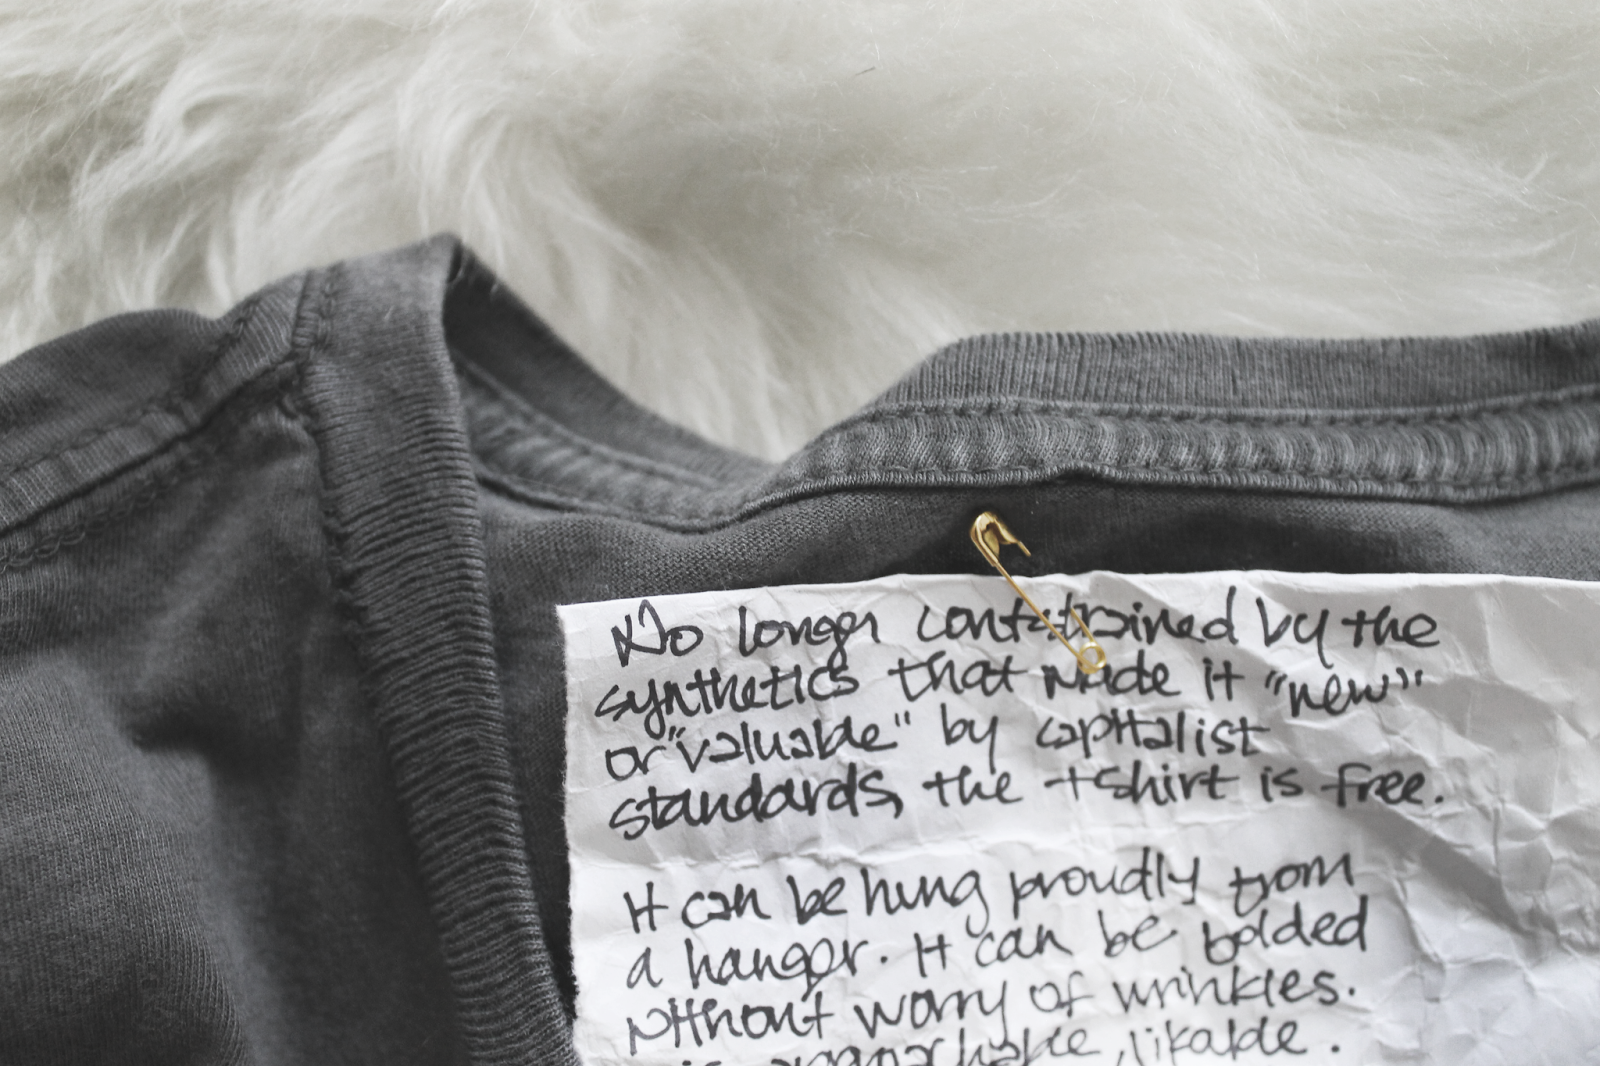 No longer constrained by the
synthetics that made it "new"
or "valuable" by capitalist
standards, the tshirt is free.
It can be hung proudly from
a hanger. It can be folded
without worry of wrinkles.
is approachable, likable.